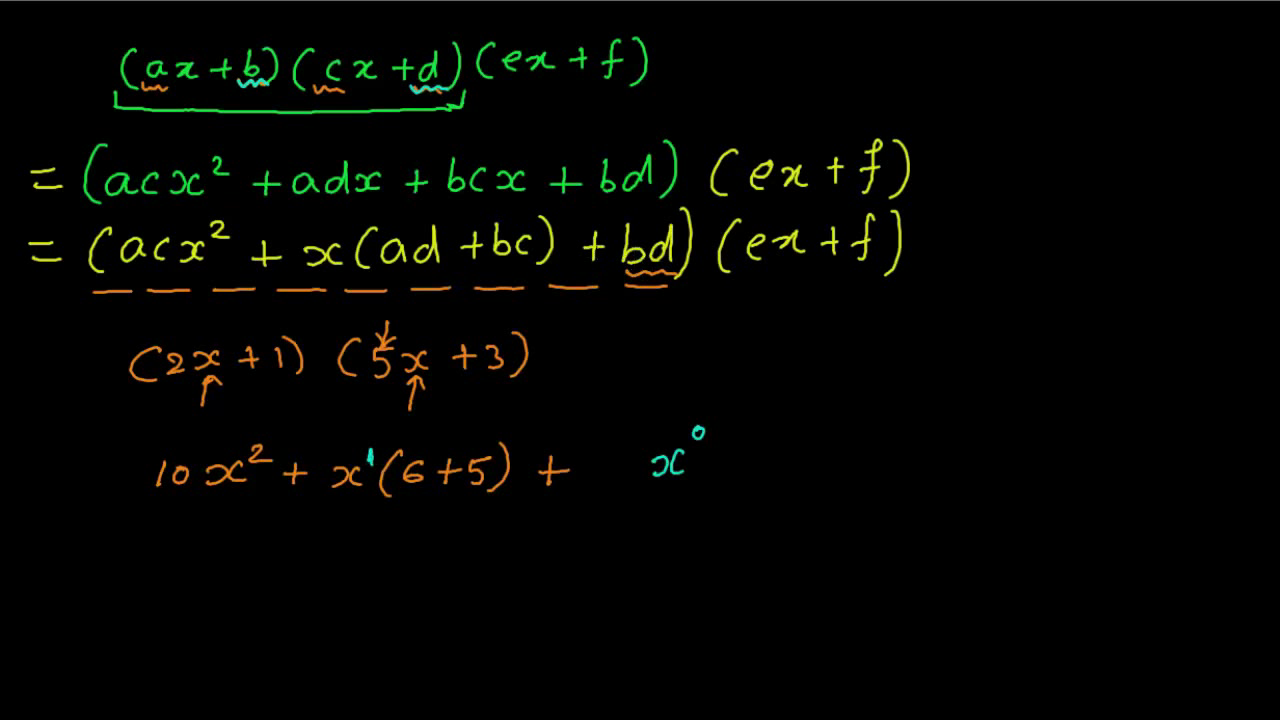 (ax+b)(cx+d)(ex+f)
= (acx² + adx + bcx + bd) (ex+f)
= (acx² + x(ad+bc) + bd) (ex+f)
(2x+1) (5x+3)
10x² + x¹(6+5) + x⁰